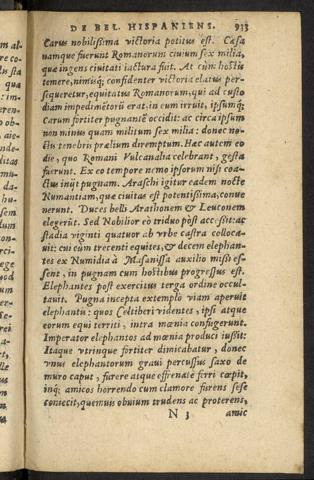 DE BEL. HISPANIENS. 933
Carus nobilissima victoria potitus est. Cæsa
namque fuerunt Romanorum civium sex milia,
quæ ingens civitati iactura fuit. At cùm hostis
temere, nimisq́; confidenter victoria elatus per-
sequeretur, equitatus Romanorum, qui ad custo
diam impedimẽtorũ erat, in eum irruit, ipsumq́;
Carum fortiter pugnantẽ occidit: ac circa ipsum
non minus quam militum sex milia: donec no-
ctis tenebris prælium diremptum. Hæc autem eo
die, quo Romani Vulcanalia celebrant, gesta
fuerunt. Ex eo tempore nemo ipsorum nisi coa-
ctus iniit pugnam. Araschi igitur eadem nocte
Numantiam, quæ civitas est potentissima, conue
nerunt. Duces belli Arathonem & Leuconem
elegerũt. Sed Nobilior eò triduo pòst accessit: ac
stadia viginti quatuor ab vrbe castra colloca-
uit: cui cùm trecenti equites, & decem elephan-
tes ex Numidia à Masanissa auxilio missi es-
sent, in pugnam cum hostibus progressus est.
Elephantes post exercitus terga ordine occul-
tauit. Pugna incepta extemplò viam aperuit
elephantũ: quos Celtiberi videntes, ipsi atque
eorum equi territi, intra mœnia confugerunt.
Imperator elephantos ad mœnia produci iußit:
Itaque vtrinque fortiter dimicabatur, donec
vnus elephantorum graui percussus saxo de
muro caput, furere atque effrenatè ferri cœpit,
inq́; amicos horrendo cum clamore furens sese
coniecit, quemuis obuium trudens ac proterens,
N 3 amic